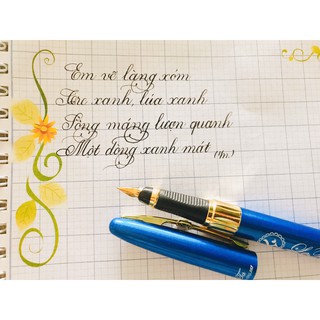 Em vẽ làng xóm
Tre xanh, lúa xanh
Sông máng lượn quanh
Một dòng xanh mát